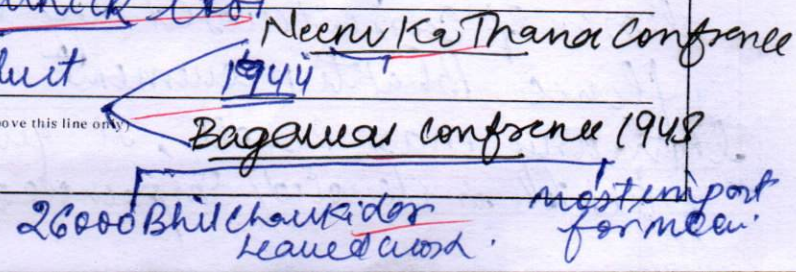 Neem Ka Thana Confrence
1944
ove this line only)
Bagawas Confrence 1948
26000 Bhil Chaukidar
leaved work.
most import
for meen.